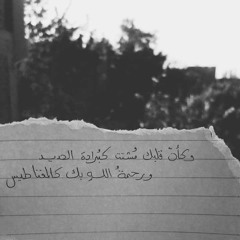 وكأنّ قلبك مُشتت كبُرادة الحديد
ورحمةُ الله بك كالمغناطيس